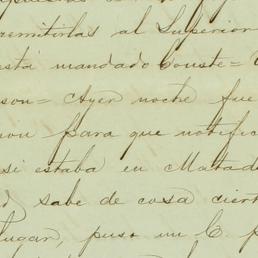 remitirlas al Superior
está mandado Conste=
son= Ayer noche fue
para que notific
si estaba en Matad
sabe de cosa ciert
lugar, puso un C p